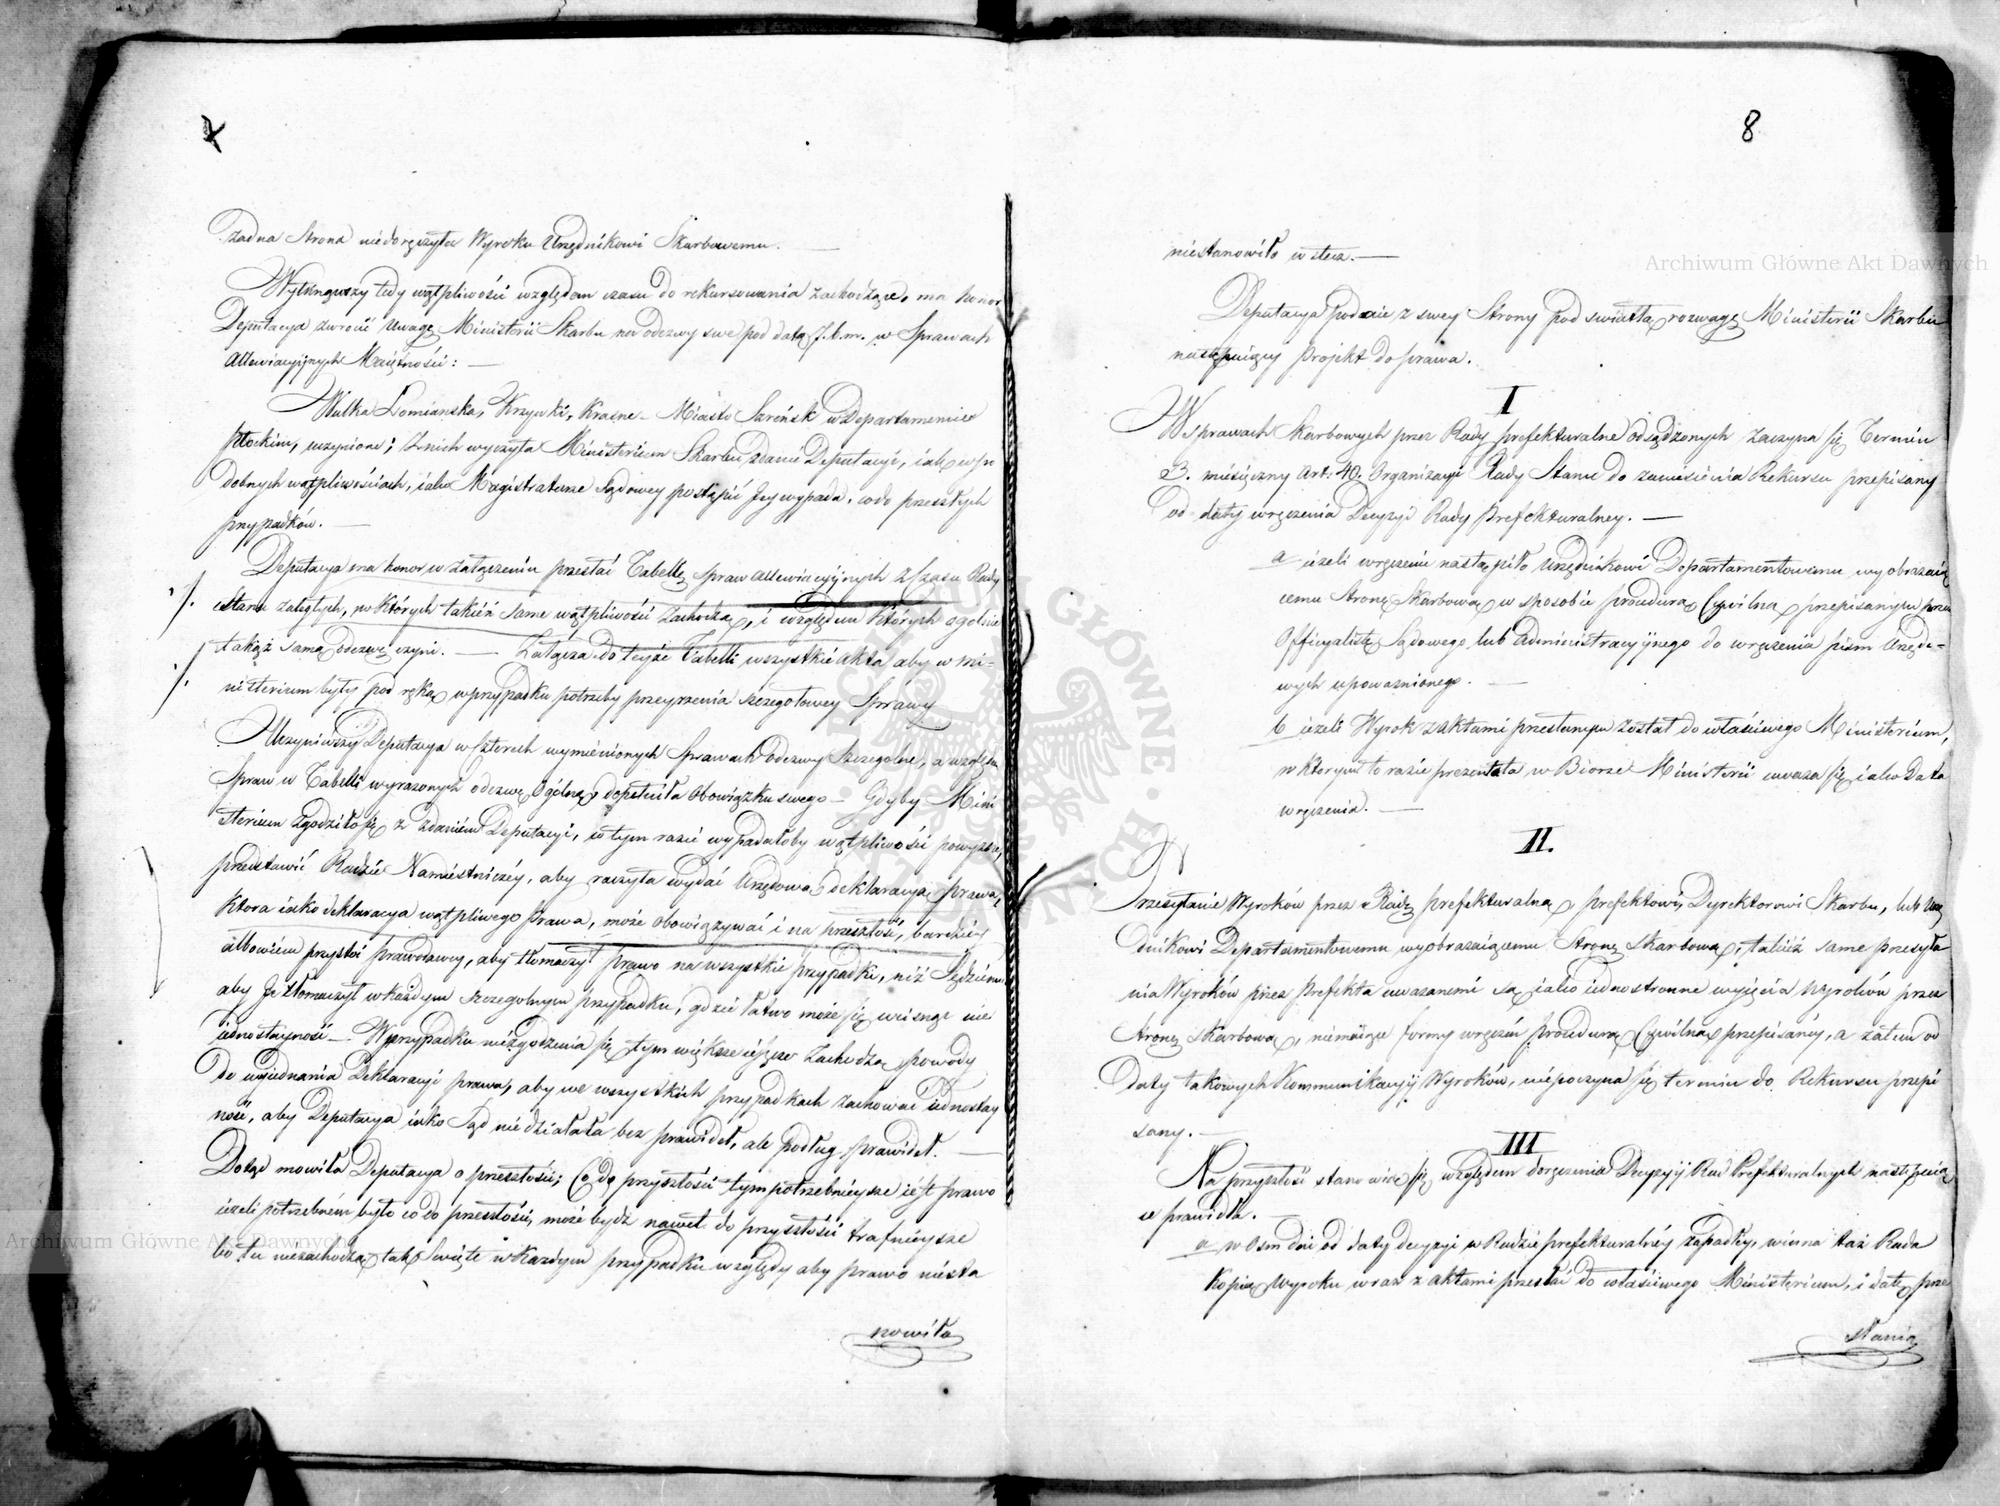 żadna Strona niedoręczyła Wyroku Urzędnikowi Skarbowemu. —
Wytknąwszy tedy wątpliwości względem czasu do rekursowania zachodzące, ma honor
Deputacya zwrócić uwagę Ministerii Skarbu na odezwy swe pod datą f. b. m. w Sprawach
Allewiacyjnych Maiętności: —
Wulka Łomianska, Krzywki, Krasne — Miasto Szreńsk w Departamencie
Płockim, uczynione; Z nich wyczyta Ministerium Skarbu zdanie Deputacyi, iak w po
dobnych wątpliwościach, iako Magistraturze Sądowey postąpić Jey wypada, co do przeszłych
przypadków. —
Deputacya ma honor w załączeniu przesłać Tabellę spraw allewiacyjnych z Czasu Rady
Stanu zaległych, w których takież same wątpliwości zachodzą, i względem których ogolnie
takąż samą odezwę czyni. — Załącza do teyże Tabelli wszystkie akta, aby w Mi-
nisterium były pod ręką w przypadku potrzeby przeyrzenia szczegołowey Sprawy
Uczyniwszy Deputacya w Czterech wymienionych Sprawach Odezwy Szczegolne, a względem
Spraw w Tabelli wyrazonych odezwę Ogólną, dopełniła Obowiązku swego — Gdyby Mini
sterium Zgodziło się z zdaniem Deputacyi, w tym razie wypadałoby wątpliwości powyższe,
przedstawić Radzie Namiestniczey, aby raczyła wydać Urzędową deklaracyą prawa,
Ktora iako deklaracya wątpliwego prawa, może obowiązywać i na przeszłość, bardziey
albowiem przystoi prawodawcy, aby tłomaczył prawo na wszystkie przypadki, niż Sędziemu
aby Je tłomaczył w każdym szczegolnym przypadku, gdzie łatwo może się wcisnąć nie
iednostayność — W przypadku niezgodzenia się tym większe ieszcze zachodzą powody
do wyiednania Deklaracyi prawa, aby we wszystkich przypadkach zachować iednostay
ność, aby Deputacya iako Sąd nie działała bez prawideł, ale podług prawideł. —
Dotąd mowiła Deputacya o przeszłości; Co do przyszłości tym potrzebnieysze iest prawo
ieżeli potrzebném było co do przeszłości, może bydź nawet do przyszłości trafnieysze
bo tu niezachodzą tak Swięte w Każdym przypadku względy aby prawo niesta
nowiło
8
niestanowiło wstecz. —
Deputacya podaie z swey Strony pod swiatłą rozwagę Ministerii Skarbu
następuiący projekt do prawa.
I
W sprawach Skarbowych przez Rady prefekturalne osądzonych zaczyna się Termin
3. miesięczny Art: 40. Organizacyi Rady Stanu do zaniesienia Rekursu przepisany
od daty wręczenia Decyzyi Rady Prefekturalney. —
a ieżeli wręczenie nastąpiło Urzędnikowi Departamentowemu wyobrazaią
cemu Stronę Skarbową w sposobie procedurą Cywilną przepisanym przez
Officyalistę Sądowego lub Administracyjnego do wręczenia pism Urzędo-
wych upoważnionego. —
b ieżeli Wyrok z aktami przesłanym został do właściwego Ministerium,
w ktorym to razie prezentata w Biorze Ministerii uważa się iako Data
wręczenia. —
II.
Przesyłanie Wyroków przez Radę prefekturalną prefektowi, Dyrektorowi Skarbu, lub Urzę
dnikowi Departamentowemu wyobrazaiącemu Stronę Skarbową, takież same przesyła
nia Wyroków przez Prefekta uwazanemi są iako iednostronne wyięcia Wyroków przez
Stronę Skarbową, niemaiące formy wręczeń procedurą Cywilną przepisaney, a zatem od
Daty takowych Kommunikacyj Wyroków, niepoczyna się termin do Rekursu przepi
sany. —
III
Na przyszłość stanowi się względem doręczenia Decyzyj Rad Prefekturalnych następuią
ce prawidła. —
a w Osm dni od daty decyzyi w Radzie prefekturalnéy zapadłey, winna taż Rada
Kopią Wyroku wraz z aktami przesłać do właściwego Ministerium, i datę prze
słania
Archiwum Główne Akt Dawnych
Archiwum Główne Akt Dawnych